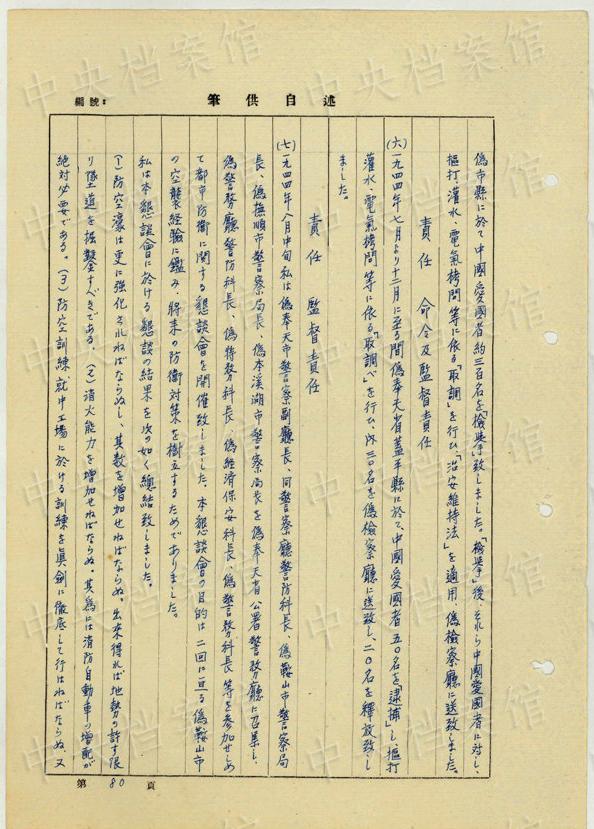 編號:
筆供自述
偽市縣に於て中國愛國者約三百名を檢擧致しました。「檢擧」後、それら中國愛國者に対し、
摳打、灌水、電氣拷問等に依る「取調」を行ひ、「治安維持法」を適用、偽檢察廳に送致しました。
責任 命令及監督責任
(六)一九四四年七月より十二月に至る間偽奉天省蓋平縣に於て、中國愛國者五〇名を「逮捕」し、摳打
灌水、電氣拷問等に依る「取調べ」を行ひ、内三〇名を偽檢察廳に送致し、二〇名を釋放致し
ました。
責任 監督責任
(七)一九四四年八月中旬私は偽奉天市警察副廳長、同警察廳警防科長、偽鞍山市警察局
長、偽撫順市警察局長、偽本溪湖市警察局長を偽奉天省公署警務廳に召集し、
偽警務廳警防科長、偽特務科長、偽經済保安科長、偽警務科長等を參加せしめ
て都市防衛に関する懇談會を開催致しました。本懇談會の目的は二回に亘る偽鞍山市
の空襲経驗に鑑み、將来の防衛対策を樹立するためでありました。
私は本懇談會に於ける懇談の結果を次の如く總結致しました。
(1)防空濠は更に強化されねばならぬし、其数を増加せねばならぬ。出来得れば地勢の許す限
り墜道を掘鑿すべきである。(2)消火能力を増加せねばならぬ。其為には消防自動車の増配が
絶対必要である。(3)防空訓練就中工場に於ける訓練を眞劍に徹底して行はねばならぬ。又
第 80 頁
中央档案馆